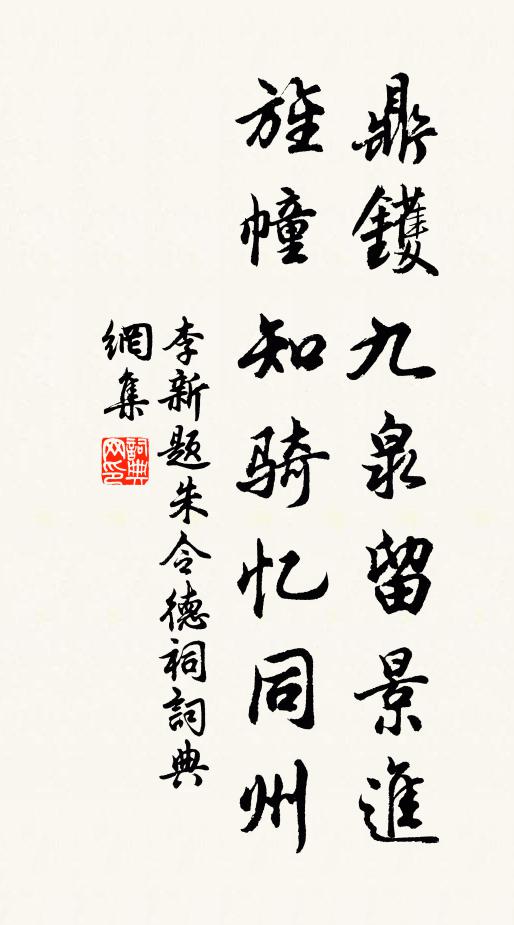 鼎鑊九泉留景進
旌幢知骑忆同州
李新题朱令德祠詞典
網集
詞典网印